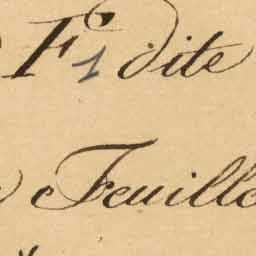 F. 1 dite
Feuille